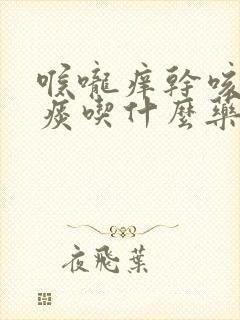 喉嚨痒幹咳
痰喫什麼藥
夜飛葉